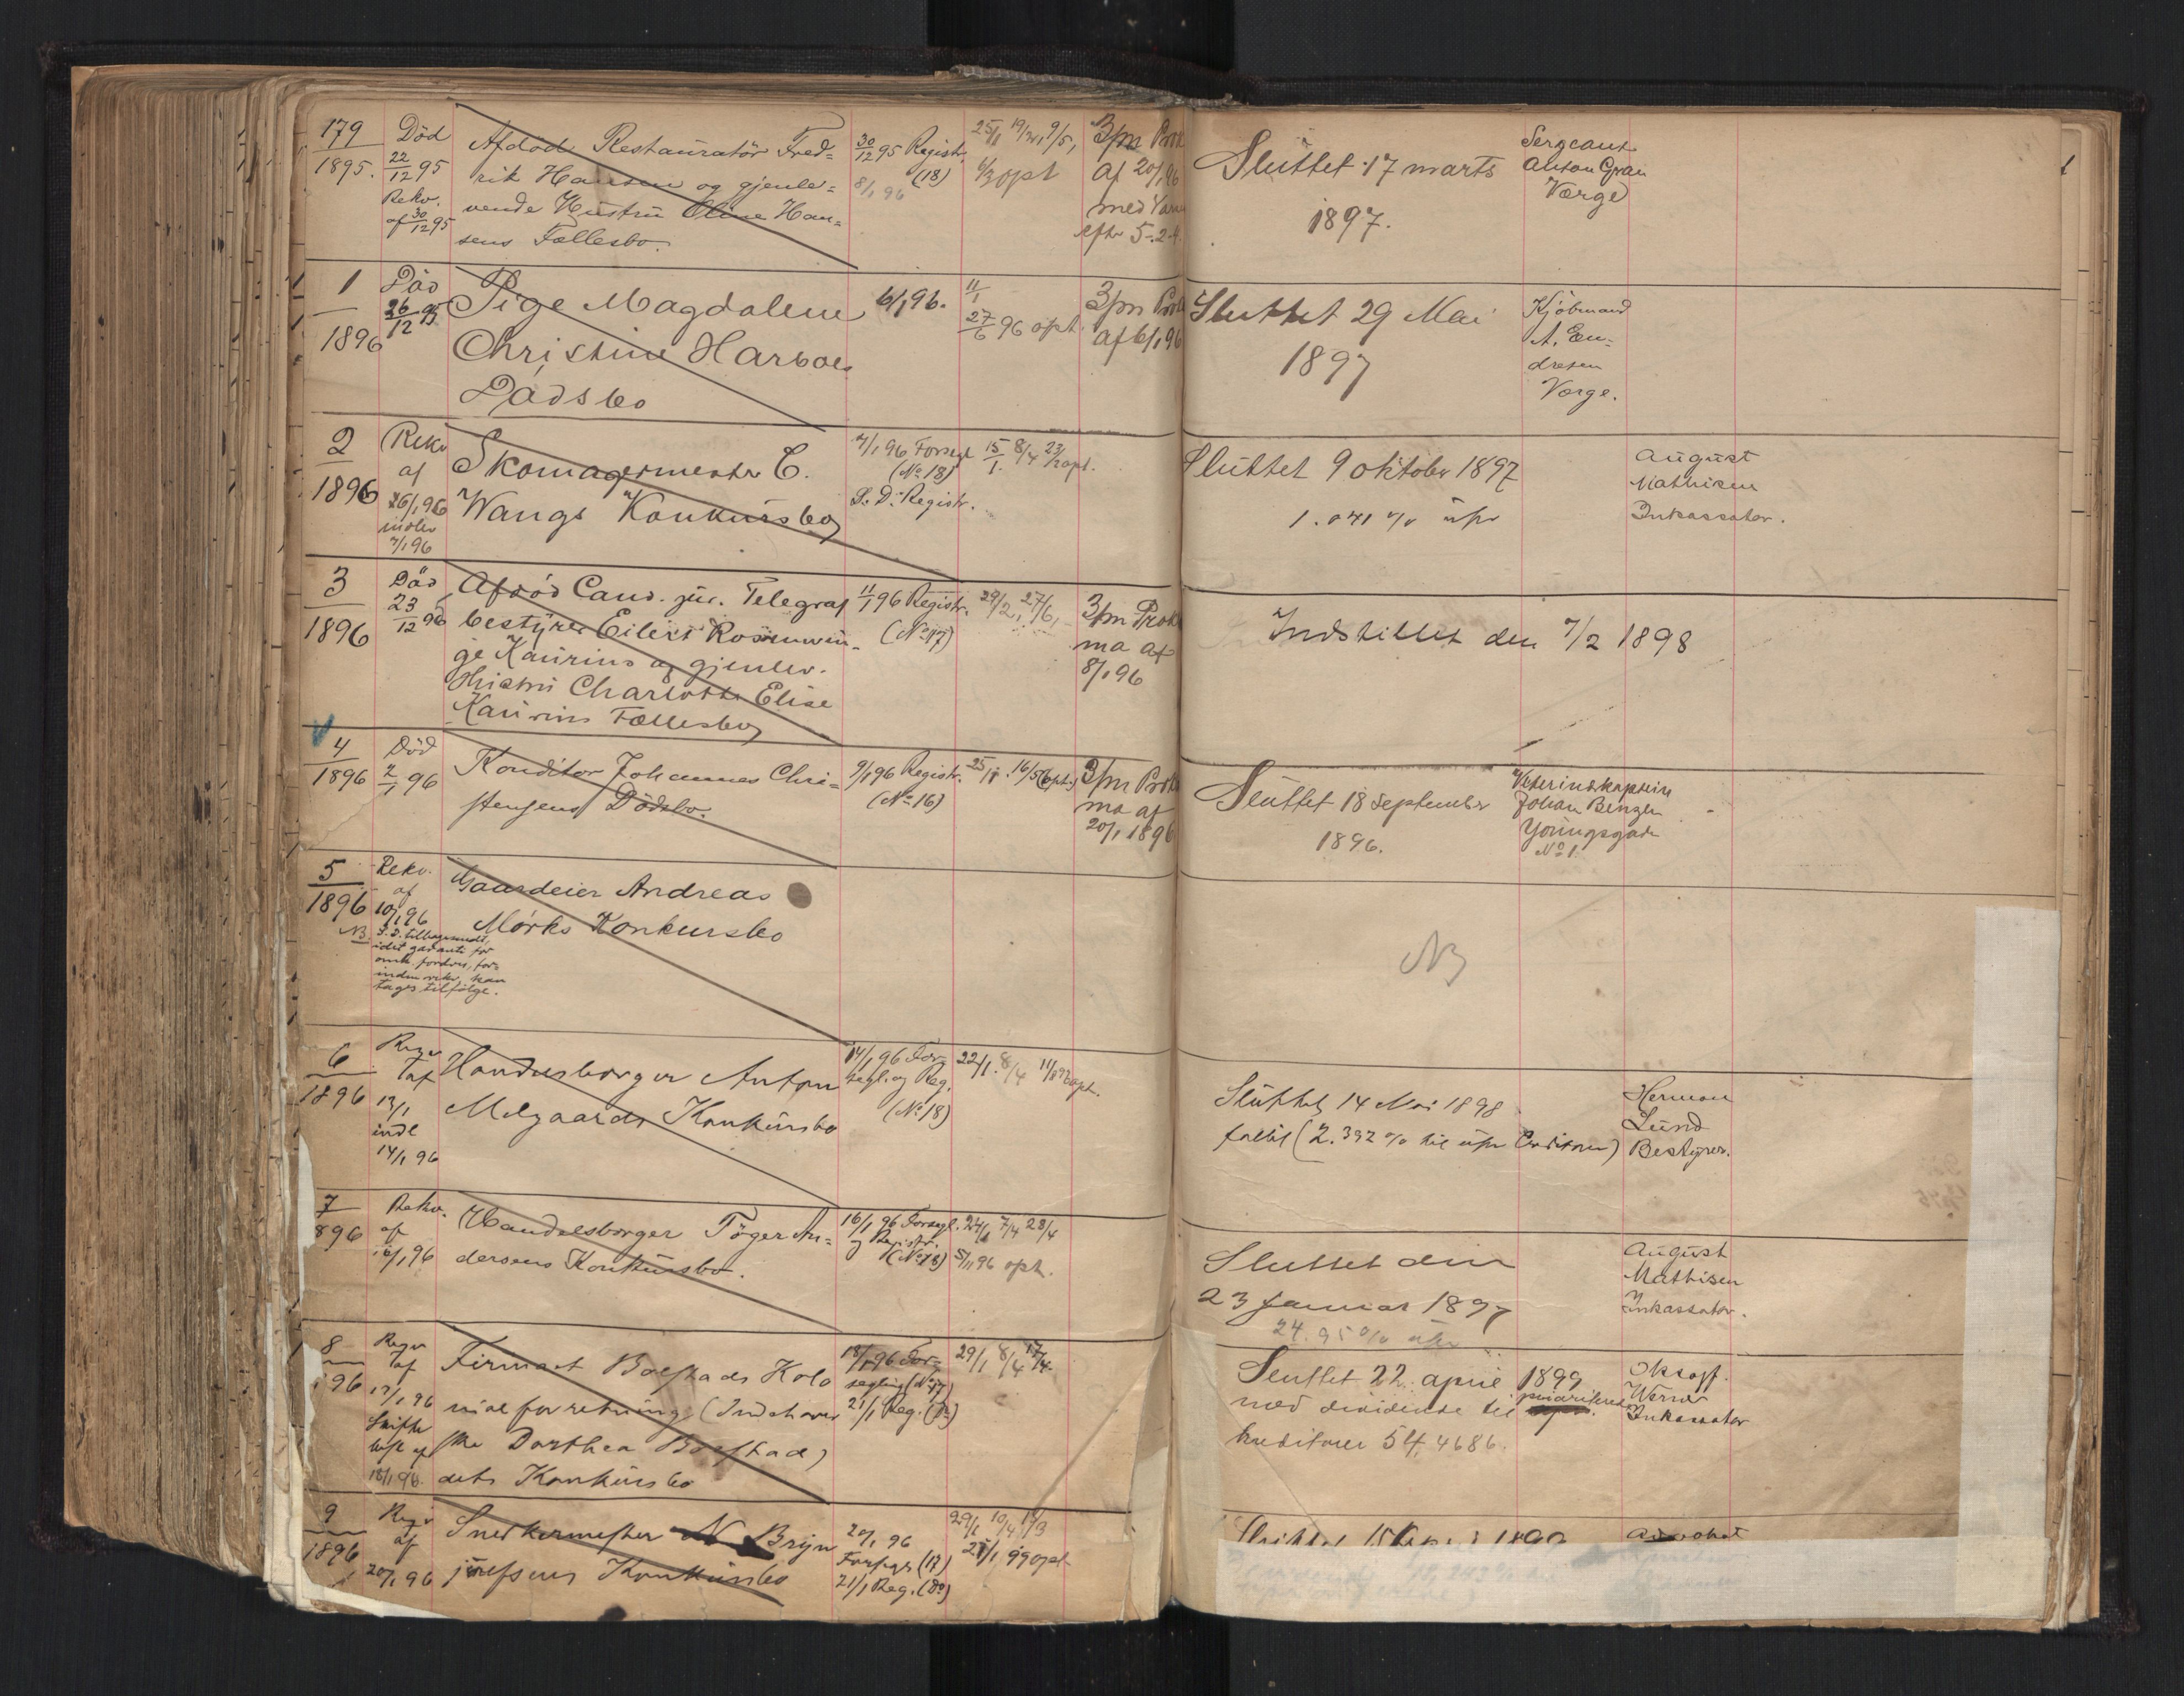 179
1895.
Död
22/12 95
Rekv.
af 30/12 95
Afdöd Restauratör Fred=
rik Hansen og gjenle=
vende Hustru Oline Han=
sens Fællesbo.
30/12 95 Registr.
(18)
8/1 96
25/1 19/3, 9/5,
opt
3/m Prok
af 20/1 96
med
5-2-4
Sluttet 17 marts
1897.
Sergeant
Anton Gran
Værge
1
1896
Död
26/12 95
Pige Magdalene
Christine Harboes
Dödsbo
6/1 96.
11/1
27/6 96 opt.
3/m Prok
af 6/1 96
Sluttet 29 Mai
1897
Kjöbmand
A. En=
dresen
Værge.
2
1896
Rekv
af
6/1 96
indlev
7/1 96
Skomagermester C.
Wangs Konkursbo
7/1 96 Forsegl
(No 18)
S. D. Registr.
15/1. 8/4 opt.
Sluttet 9 oktober 1897
1.041 % upr
August
Mathisen
Inkassator.
3
1896
Död
23/12 95
Afdöd Cand. jur. Telegraf
bestyrer Eilert Rosenvin=
ge Kaurins og gjenlev.
Hustru Charlotte Elise
Kaurins Fællesbo
11/1 96 Registr.
(No 17)
29/2, 27/6,
3/m Prokla
ma af
8/1 96
Indstillet den 7/2 1898
4
1896
Död
2/1 96
Konditor Johannes Chri=
stensens Dödsbo.
9/1 96 Registr.
(No 16)
25/1. 16/5 (opt.)
3/m Prokla
ma af
20/1 1896
Sluttet 18 September
1896.
Veterinærkaptein
Johan Benzen
Youngsgade
No 1.
5
1896
NB.
Rekv.
af
10/1 96
S. D. tilbagesendt,
idet garanti for
omk. fordres, for=
inden rekv. kan
tages tilfölge.
Gaardeier Andreas
Mörks Konkursbo
NB
6
1896
Reqv
af
13/1
indl
14/1 96
Handelsborger Anton
Melgaards Konkursbo
14/1 96 For=
segl. og Reg.
(No 18)
22/1. 8/4 opt.
Sluttet 14 Mai 1898
(2.392 % til upr Creditorer)
Herman
Lund
Bestyrer.
7
896
Rekv.
af
16/1 96
Handelsborger Töger An=
dersens Konkursbo.
16/1 96 Forsegl.
og Registr.
(No 18)
24/1 7/4 28/4
5/11 96 opt.
Sluttet den
23 Januar 1897
24.95 % upr
August
Mathisen
Inkassator.
8
96
Reqv
af
17/1 96
Skifte
af
18/1 96.
Firmaet Boestads Kolo
nialforretning (Indehaver
ske Dorthea Boestad)
dets Konkursbo
18/1 96 For=
segling (No 17)
21/1 Reg. (Do)
29/1 8/4 17/4.
Sluttet 22 april 1899
med dividende til
kreditorer 54,4686.
Werner
Inkassator
9
1896
Reqv
af
20/1 96
Snedkermester N Bryn
julfsens Konkursbo
20/1 96
Forsegl (17)
21/1 Reg. (Do)
29/1 10/4
opt
Sluttet 15 1899
Advokat